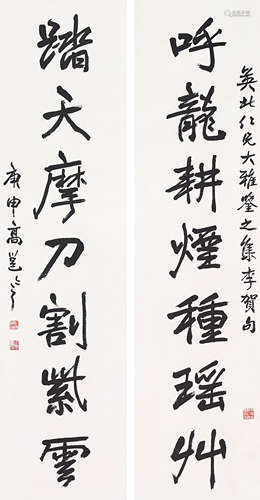 英北仁兄大雅鉴之集李贺句
呼龍耕煙種瑶艸
踏天摩刀割紫雲
庚申高邕